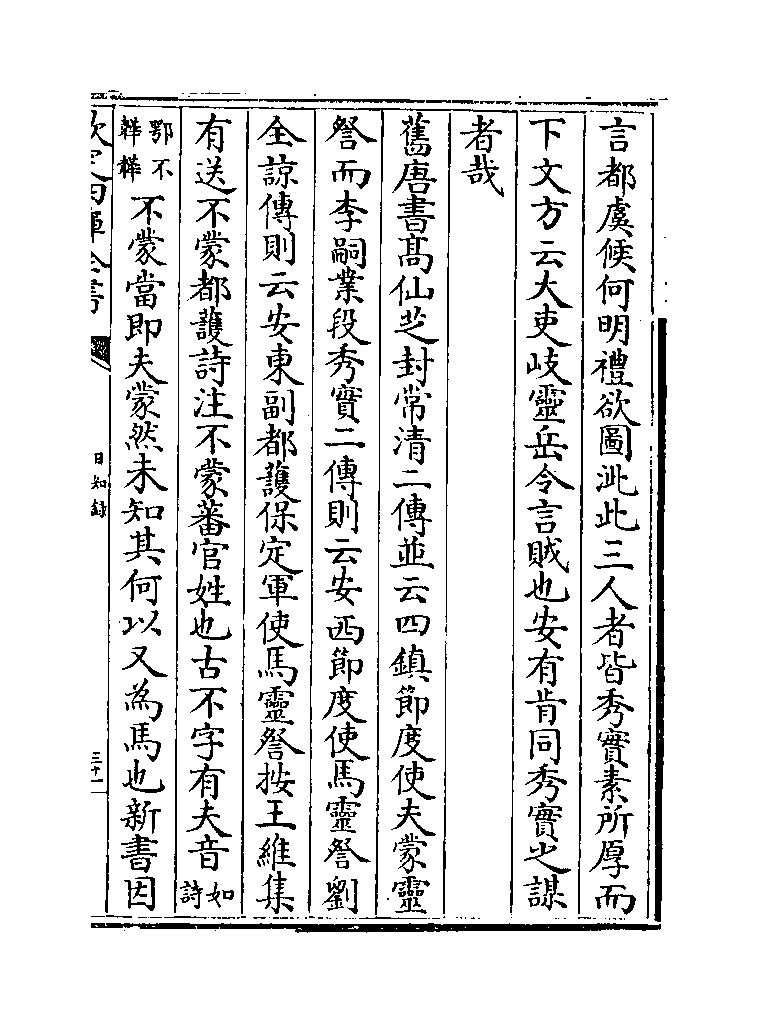 言都虞候何明禮欲圖泚此三人者皆秀實素所厚而
下文方云大吏岐靈岳令言賊也安有肯同秀實之謀
者哉
舊唐書髙仙芝封常清二傳並云四鎮節度使夫蒙靈
詧而李嗣業段秀實二傳則云安西節度使馬靈詧劉
全諒傳則云安東副都護保定軍使馬靈詧按王維集
有送不蒙都護詩注不蒙蕃官姓也古不字有夫音如詩
鄂不韡韡不蒙當即夫蒙然未知其何以又為馬也新書因
日知錄
三十一